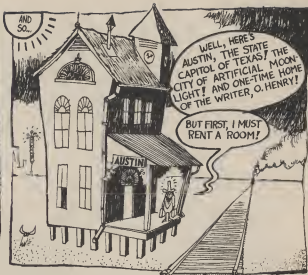 AND
SO...
WELL, HERE'S
AUSTIN, THE STATE
CAPITOL OF TEXAS! THE
CITY OF ARTIFICIAL MOON
LIGHT! AND ONE-TIME HOME
OF THE WRITER, O. HENRY!
BUT FIRST, I MUST
RENT A ROOM!
AUSTIN